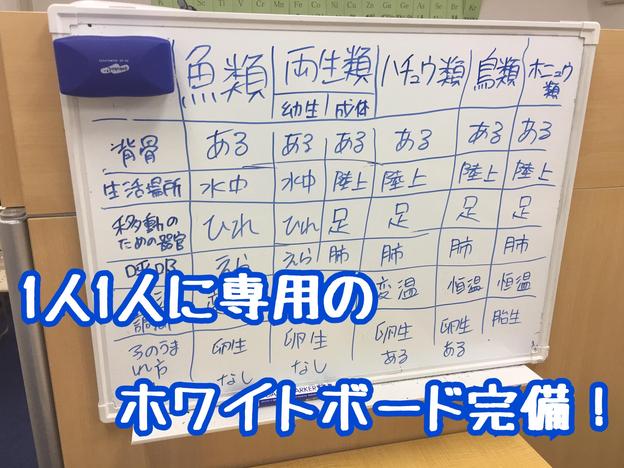 魚類 両生類 ハチュウ類 鳥類 ホニュウ類
幼生 成体
背骨 ある ある ある ある ある ある
生活場所 水中 水中 陸上 陸上 陸上 陸上
移動のための器官 ひれ ひれ 足 足 足 足
えら えら 肺 肺 肺 肺
変温 恒温 恒温
子のうまれ方 卵生 卵生 卵生 卵生 胎生
なし なし ある ある
1人1人に専用の
ホワイトボード完備！